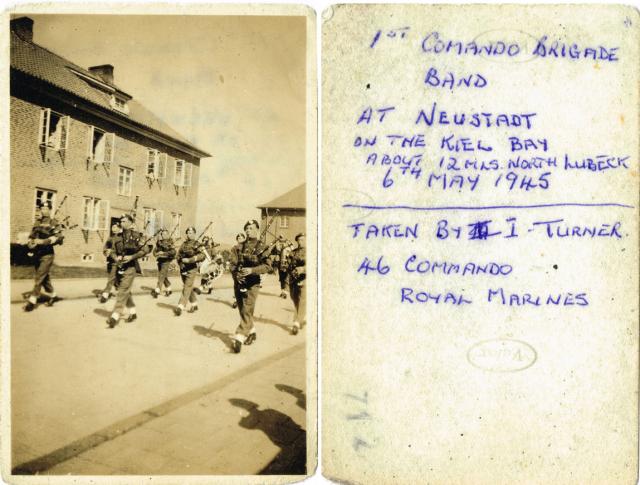 1ST COMANDO BRIGADE
BAND
AT NEUSTADT
ON THE KIEL BAY
ABOUT 12 MLS. NORTH LUBECK
6TH MAY 1945
TAKEN BY I - TURNER.
46 COMMANDO
ROYAL MARINES
Velox